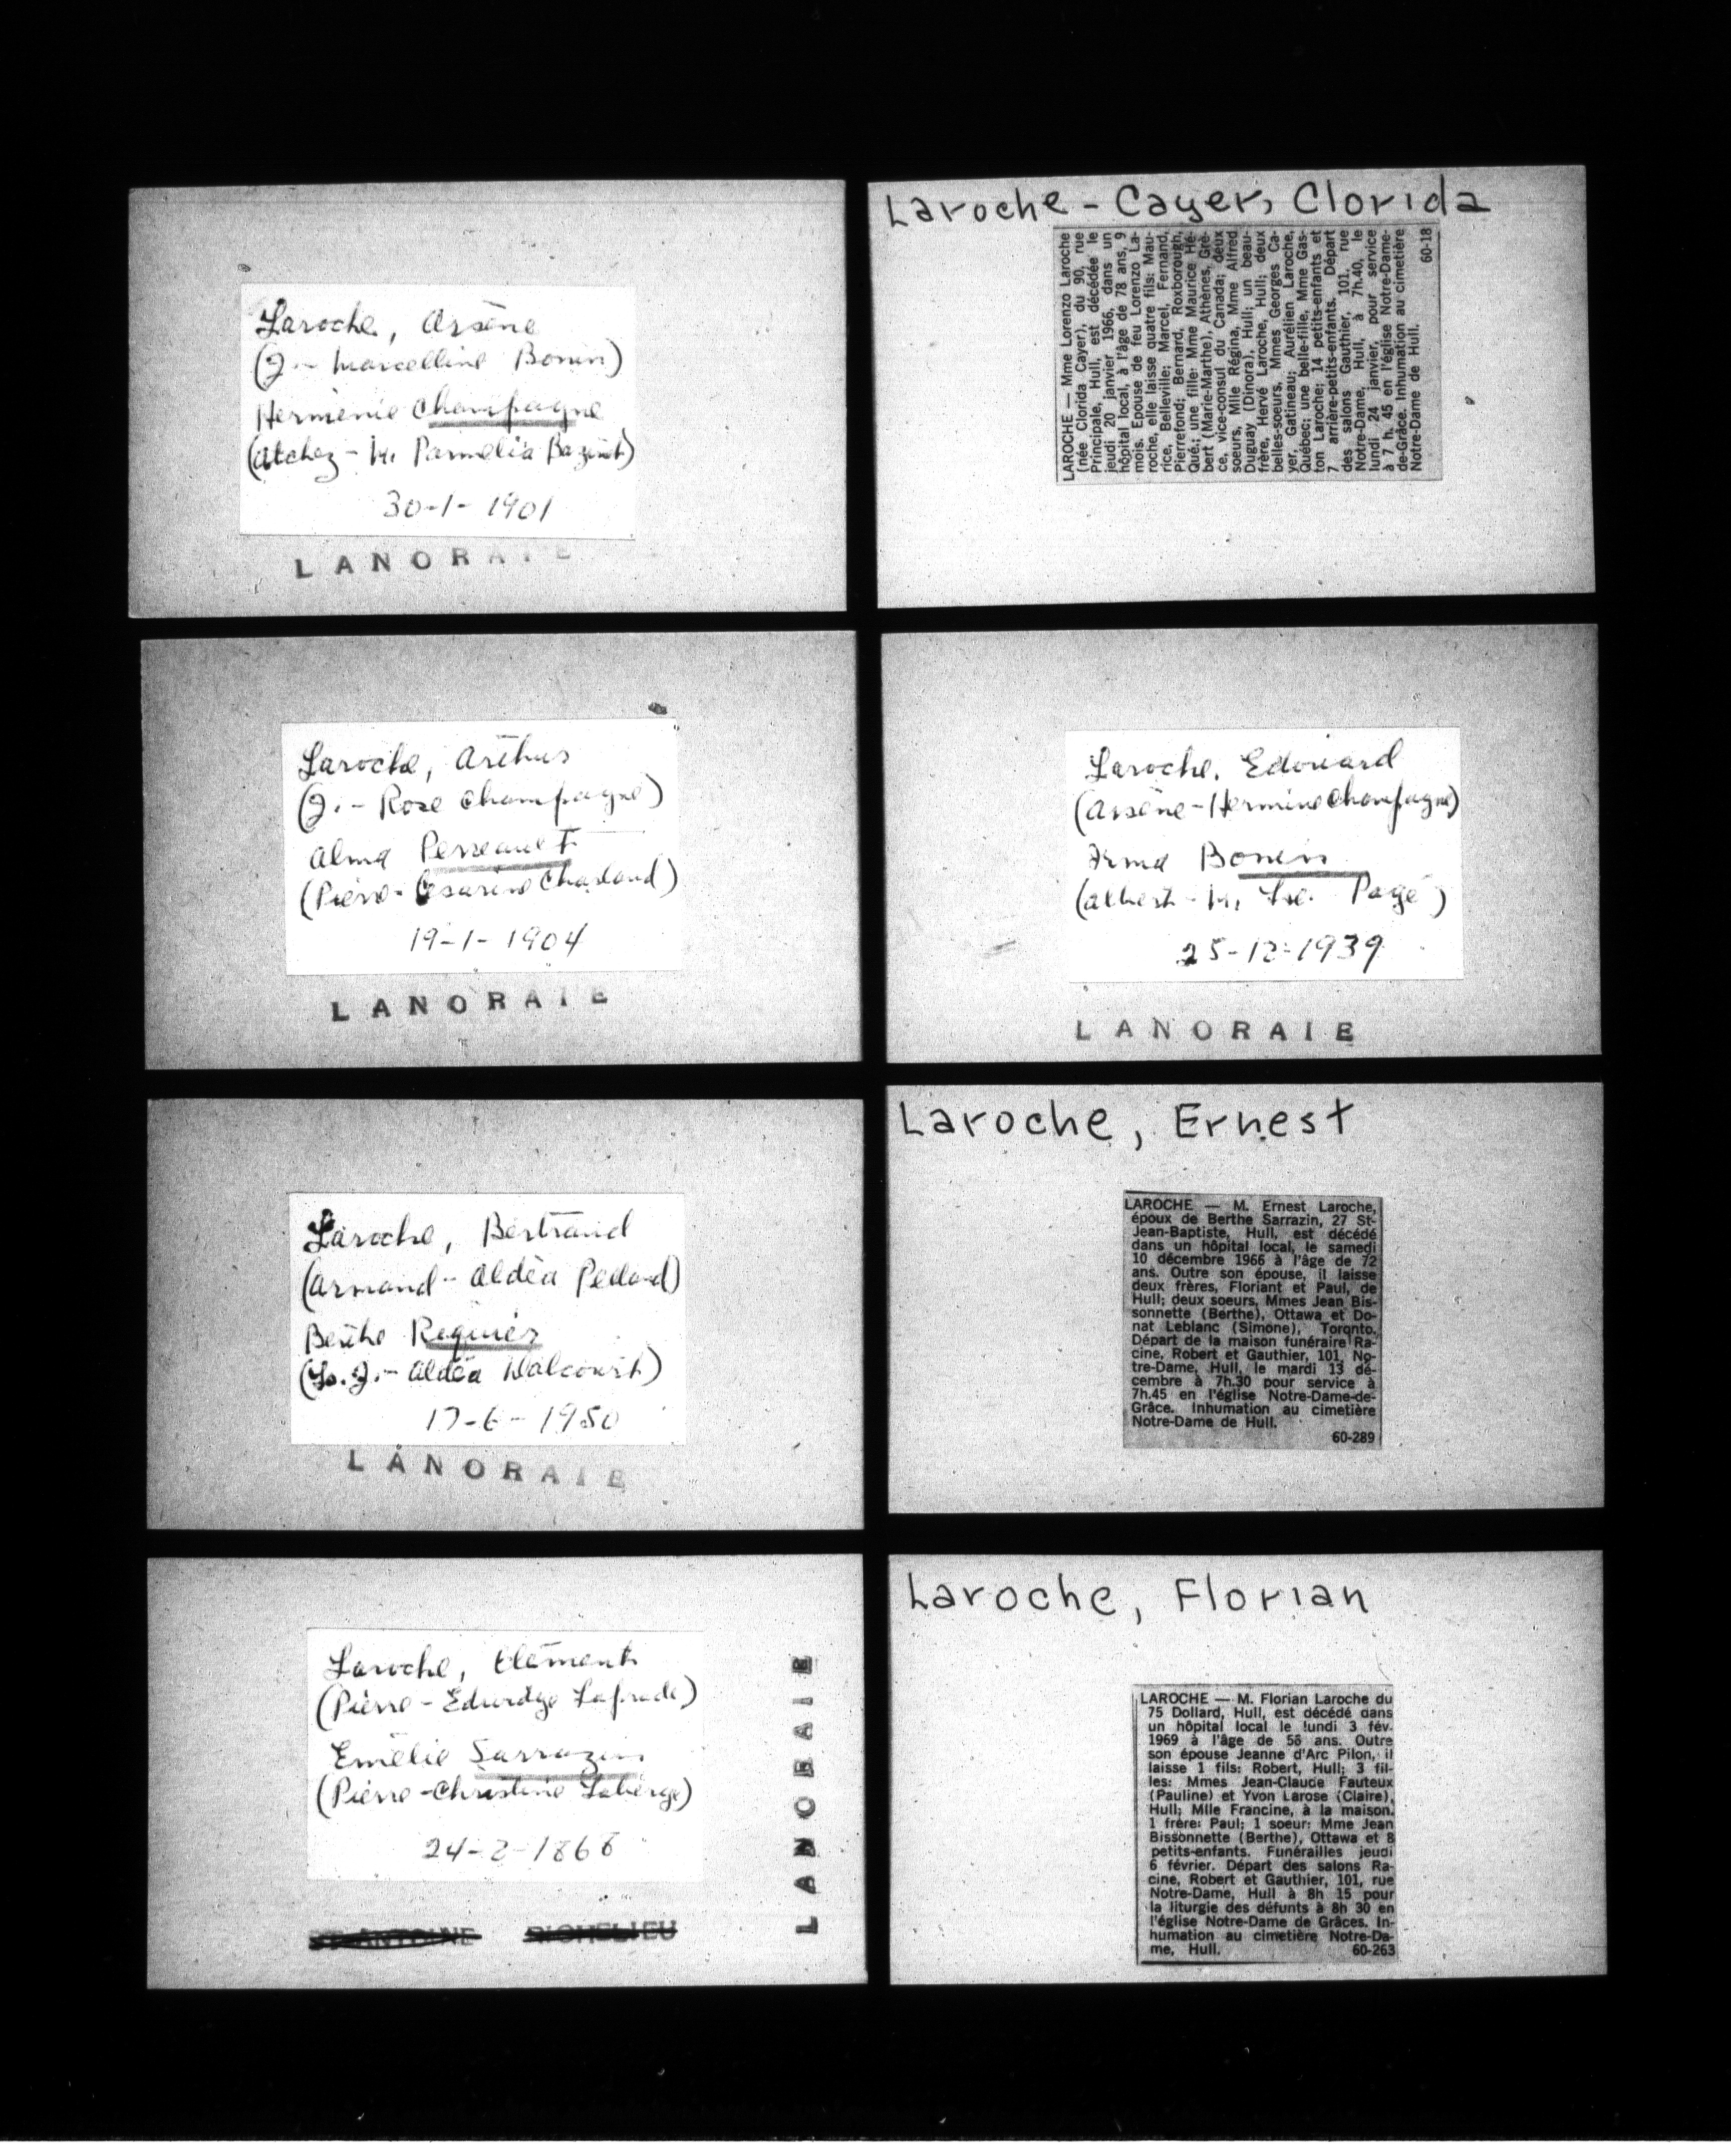 Laroche, Arsène
(J. - Marcelline Bonin)
Herménie Champagne
(Atchez - M. Parmélia Bazinet)
30-1-1901
LANORAIE
Laroche, Arthur
(J. - Rose Champagne)
Alma Perreault
(Pierre - Césarine Charland)
19-1-1904
LANORAIE
Laroche, Bertrand
(Armand - Aldéa Pelland)
Berthe Reguier
(Ls. J. - Aldéa Dalcourt)
17-6-1950
LANORAIE
Laroche, Clément
(Pierre - Edwidge Laprade)
Emélie Sarrazin
(Pierre - Christine Laberge)
24-2-1868
LANORAIE
Laroche - Cayer, Clorida
LAROCHE — Mme Lorenzo Laroche
(née Clorida Cayer), du 90, rue
Principale, Hull, est décédée le
jeudi 20 janvier 1966, dans un
hôpital local, à l'âge de 78 ans, 9
mois. Epouse de feu Lorenzo La-
roche, elle laisse quatre fils: Mau-
rice, Belleville; Marcel, Fernand,
Pierrefond; Bernard, Roxborough,
Qué.; une fille: Mme Maurice Hé-
bert (Marie-Marthe), Athènes, Grè-
ce, vice-consul du Canada; deux
soeurs, Mlle Régina, Mme Alfred
Duguay (Dinora), Hull; un beau-
frère, Hervé Laroche, Hull; deux
belles-soeurs, Mmes Georges Ca-
yer, Gatineau; Aurélien Laroche,
Québec; une belle-fille, Mme Gas-
ton Laroche; 14 petits-enfants et
7 arrière-petits-enfants. Départ
des salons Gauthier, 101, rue
Notre-Dame, Hull, à 7h.40, le
lundi 24 janvier, pour service
à 7 h. 45 en l'église Notre-Dame-
de-Grâce. Inhumation au cimetière
Notre-Dame de Hull.
60-18
Laroche, Edouard
(Arsène - Hermine Champagne)
Irma Bonin
(Albert - M. Lse. Pagé)
25-12-1939
LANORAIE
Laroche, Ernest
LAROCHE — M. Ernest Laroche,
époux de Berthe Sarrazin, 27 St-
Jean-Baptiste, Hull, est décédé
dans un hôpital local, le samedi
10 décembre 1966 à l'âge de 72
ans. Outre son épouse, il laisse
deux frères, Floriant et Paul, de
Hull; deux soeurs, Mmes Jean Bis-
sonnette (Berthe), Ottawa et Do-
nat Leblanc (Simone), Toronto.
Départ de la maison funéraire Ra-
cine, Robert et Gauthier, 101, No-
tre-Dame, Hull, le mardi 13 dé-
cembre à 7h.30 pour service à
7h.45 en l'église Notre-Dame-de-
Grâce. Inhumation au cimetière
Notre-Dame de Hull.
60-289
Laroche, Florian
LAROCHE — M. Florian Laroche du
75 Dollard, Hull, est décédé dans
un hôpital local le lundi 3 fév.
1969 à l'âge de 56 ans. Outre
son épouse Jeanne d'Arc Pilon, il
laisse 1 fils: Robert, Hull; 3 fil-
les: Mmes Jean-Claude Fauteux
(Pauline) et Yvon Larose (Claire),
Hull; Mlle Francine, à la maison.
1 frère: Paul; 1 soeur: Mme Jean
Bissonnette (Berthe), Ottawa et 8
petits-enfants. Funérailles jeudi
6 février. Départ des salons Ra-
cine, Robert et Gauthier, 101, rue
Notre-Dame, Hull à 8h 15 pour
la liturgie des défunts à 8h 30 en
l'église Notre-Dame de Grâces. In-
humation au cimetière Notre-Da-
me, Hull. 60-263